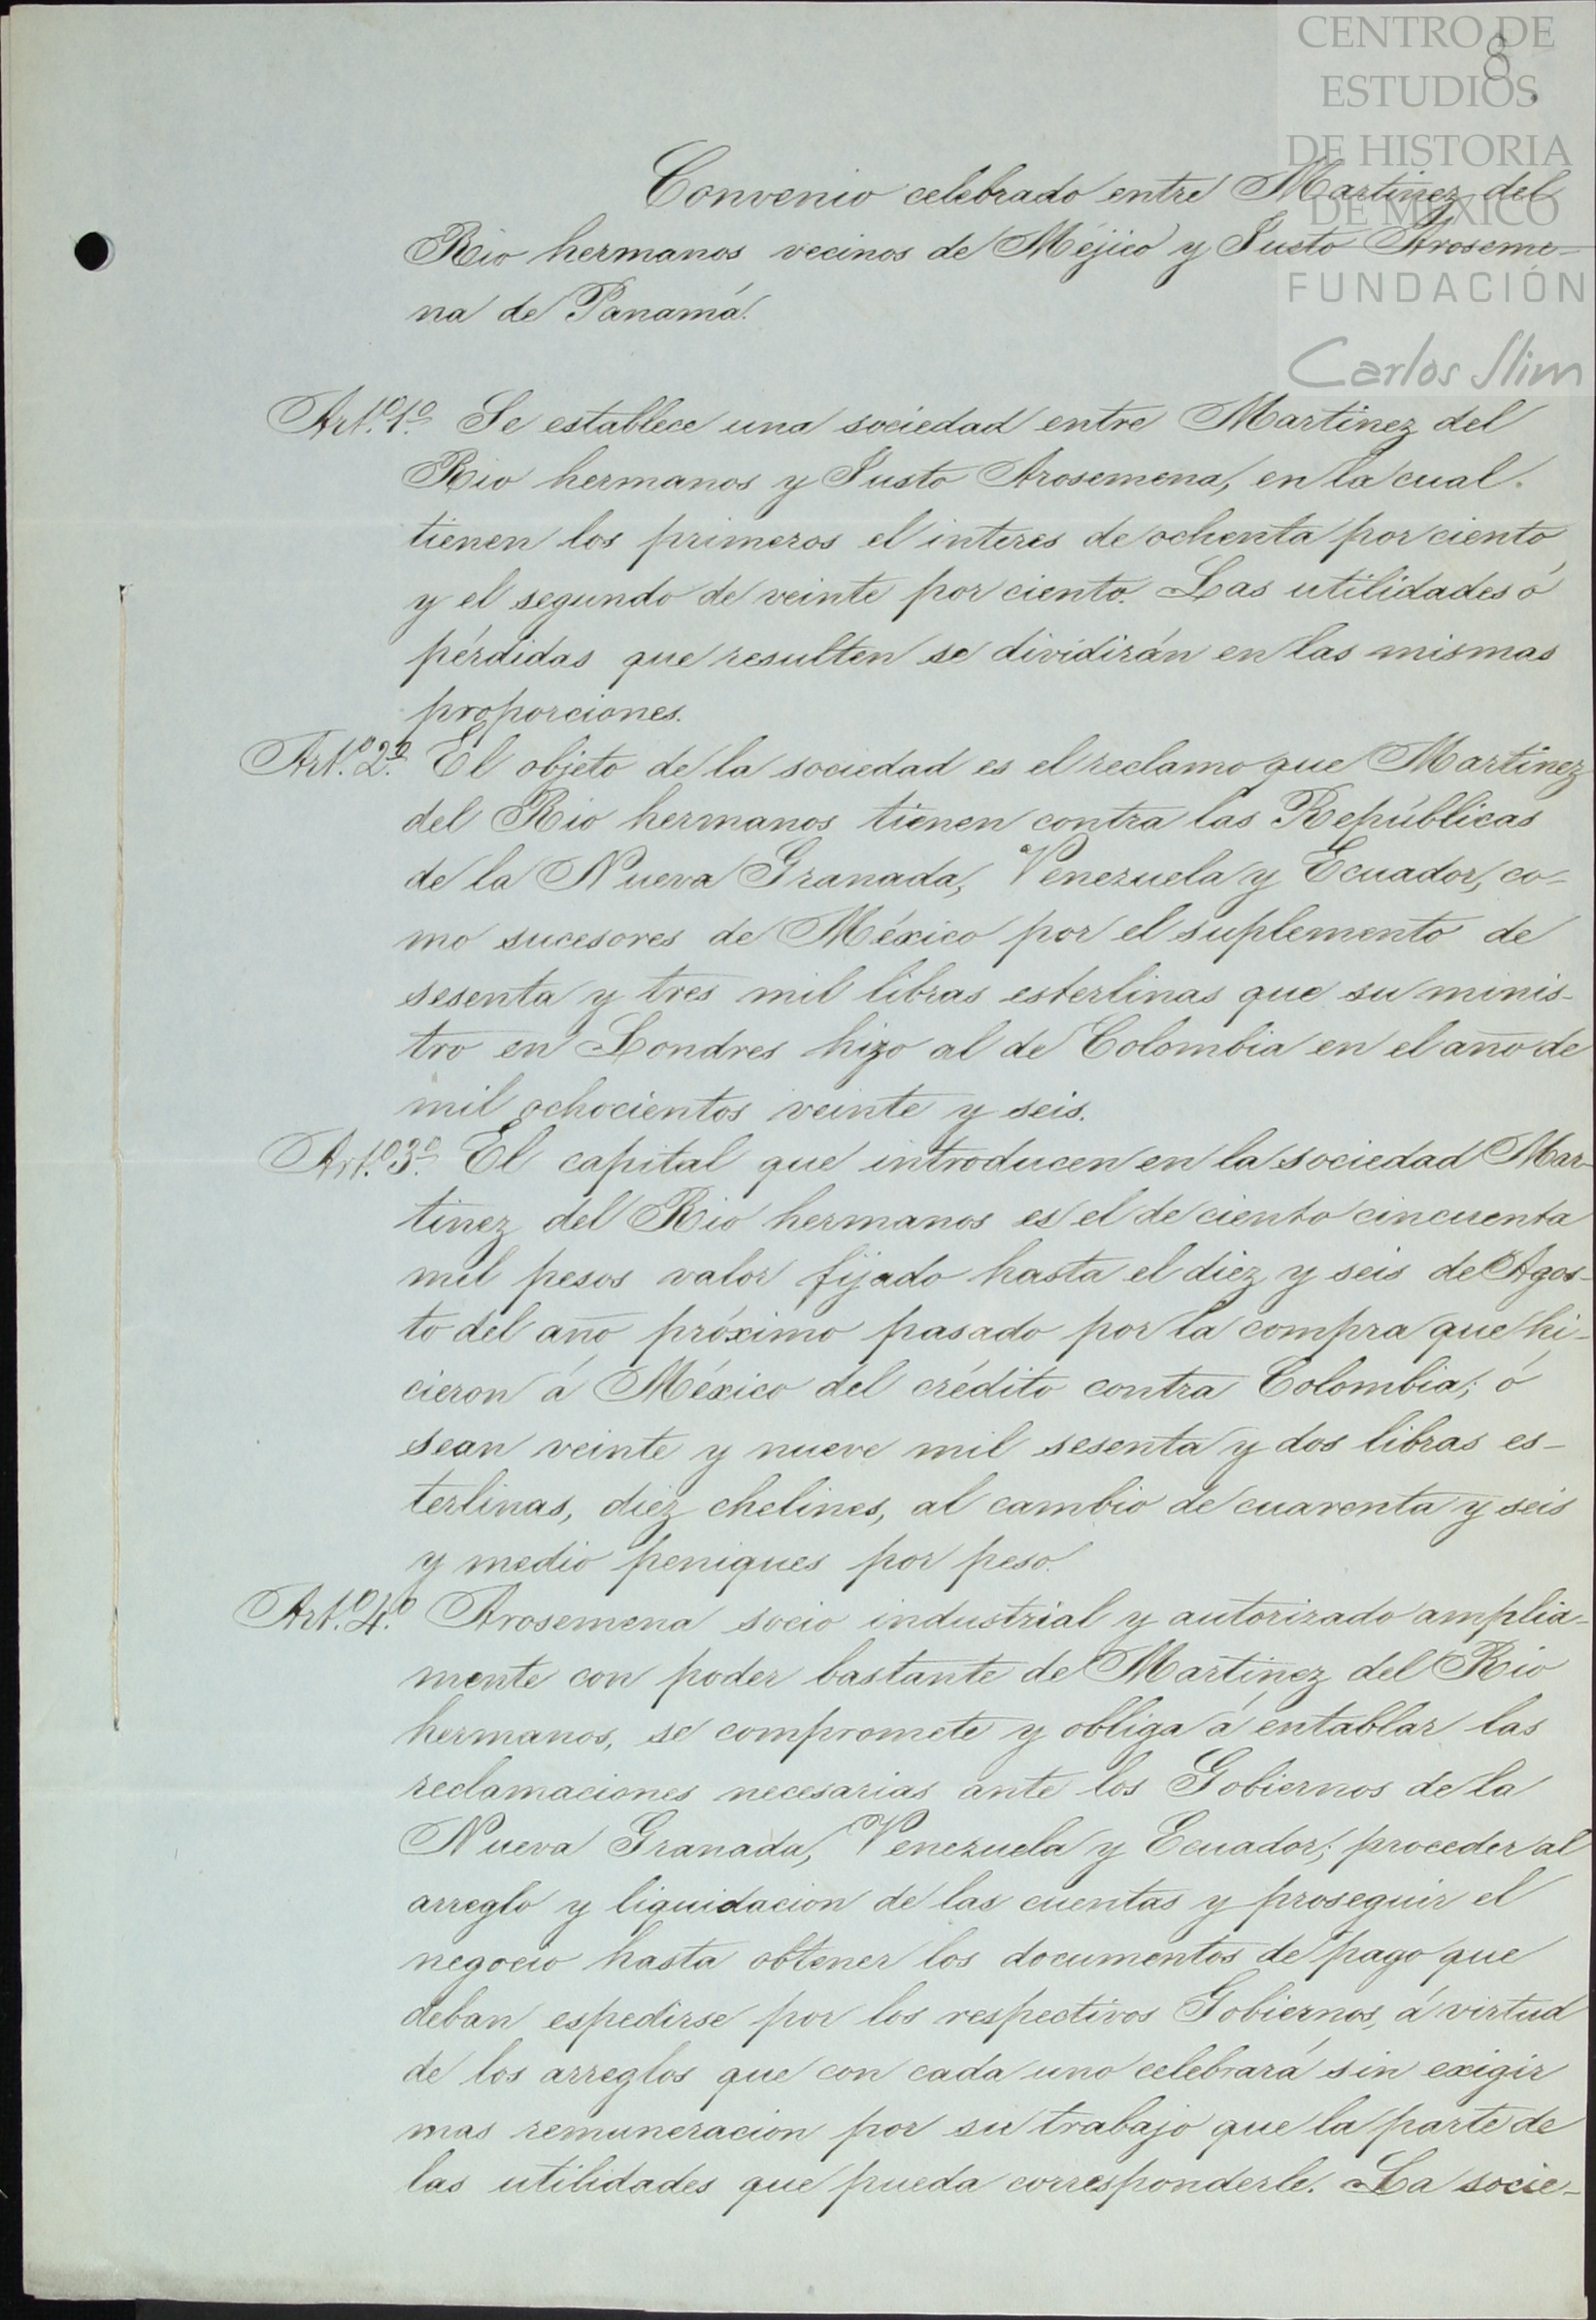 CENTRO DE
ESTUDIOS
DE HISTORIA
DE MÉXICO
FUNDACIÓN
Carlos Slim
8.
Convenio celebrado entre Martinez del
Rio hermanos vecinos de Méjico y Justo Aroseme-
na de Panamá.
Art.º 1.º Se establece una sociedad entre Martinez del
Rio hermanos y Justo Arosemena, en la cual
tienen los primeros el interes de ochenta por ciento,
y el segundo de veinte por ciento. Las utilidades ó
pérdidas que resulten se dividirán en las mismas
proporciones.
Art.º 2.º El objeto de la sociedad es el reclamo que Martinez
del Rio hermanos tienen contra las Repúblicas
de la Nueva Granada, Venezuela y Ecuador, co-
mo sucesores de México por el suplemento de
sesenta y tres mil libras esterlinas que su minis-
tro en Londres hizo al de Colombia en el año de
mil ochocientos veinte y seis.
Art.º 3.º El capital que introducen en la sociedad Mar-
tinez del Rio hermanos es el de ciento cincuenta
mil pesos valor fijado hasta el diez y seis de Agos-
to del año próximo pasado por la compra que hi-
cieron á México del crédito contra Colombia; ó
sean veinte y nueve mil sesenta y dos libras es-
terlinas, diez chelines, al cambio de cuarenta y seis
y medio peniques por peso.
Art.º 4.º Arosemena socio industrial y autorizado amplia-
mente con poder bastante de Martinez del Rio
hermanos, se compromete y obliga á entablar las
reclamaciones necesarias ante los Gobiernos de la
Nueva Granada, Venezuela y Ecuador; proceder al
arreglo y liquidacion de las cuentas y proseguir el
negocio hasta obtener los documentos de pago que
deban espedirse por los respectivos Gobiernos, á virtud
de los arreglos que con cada uno celebrará sin exigir
mas remuneracion por su trabajo que la parte de
las utilidades que pueda corresponderle. La socie-